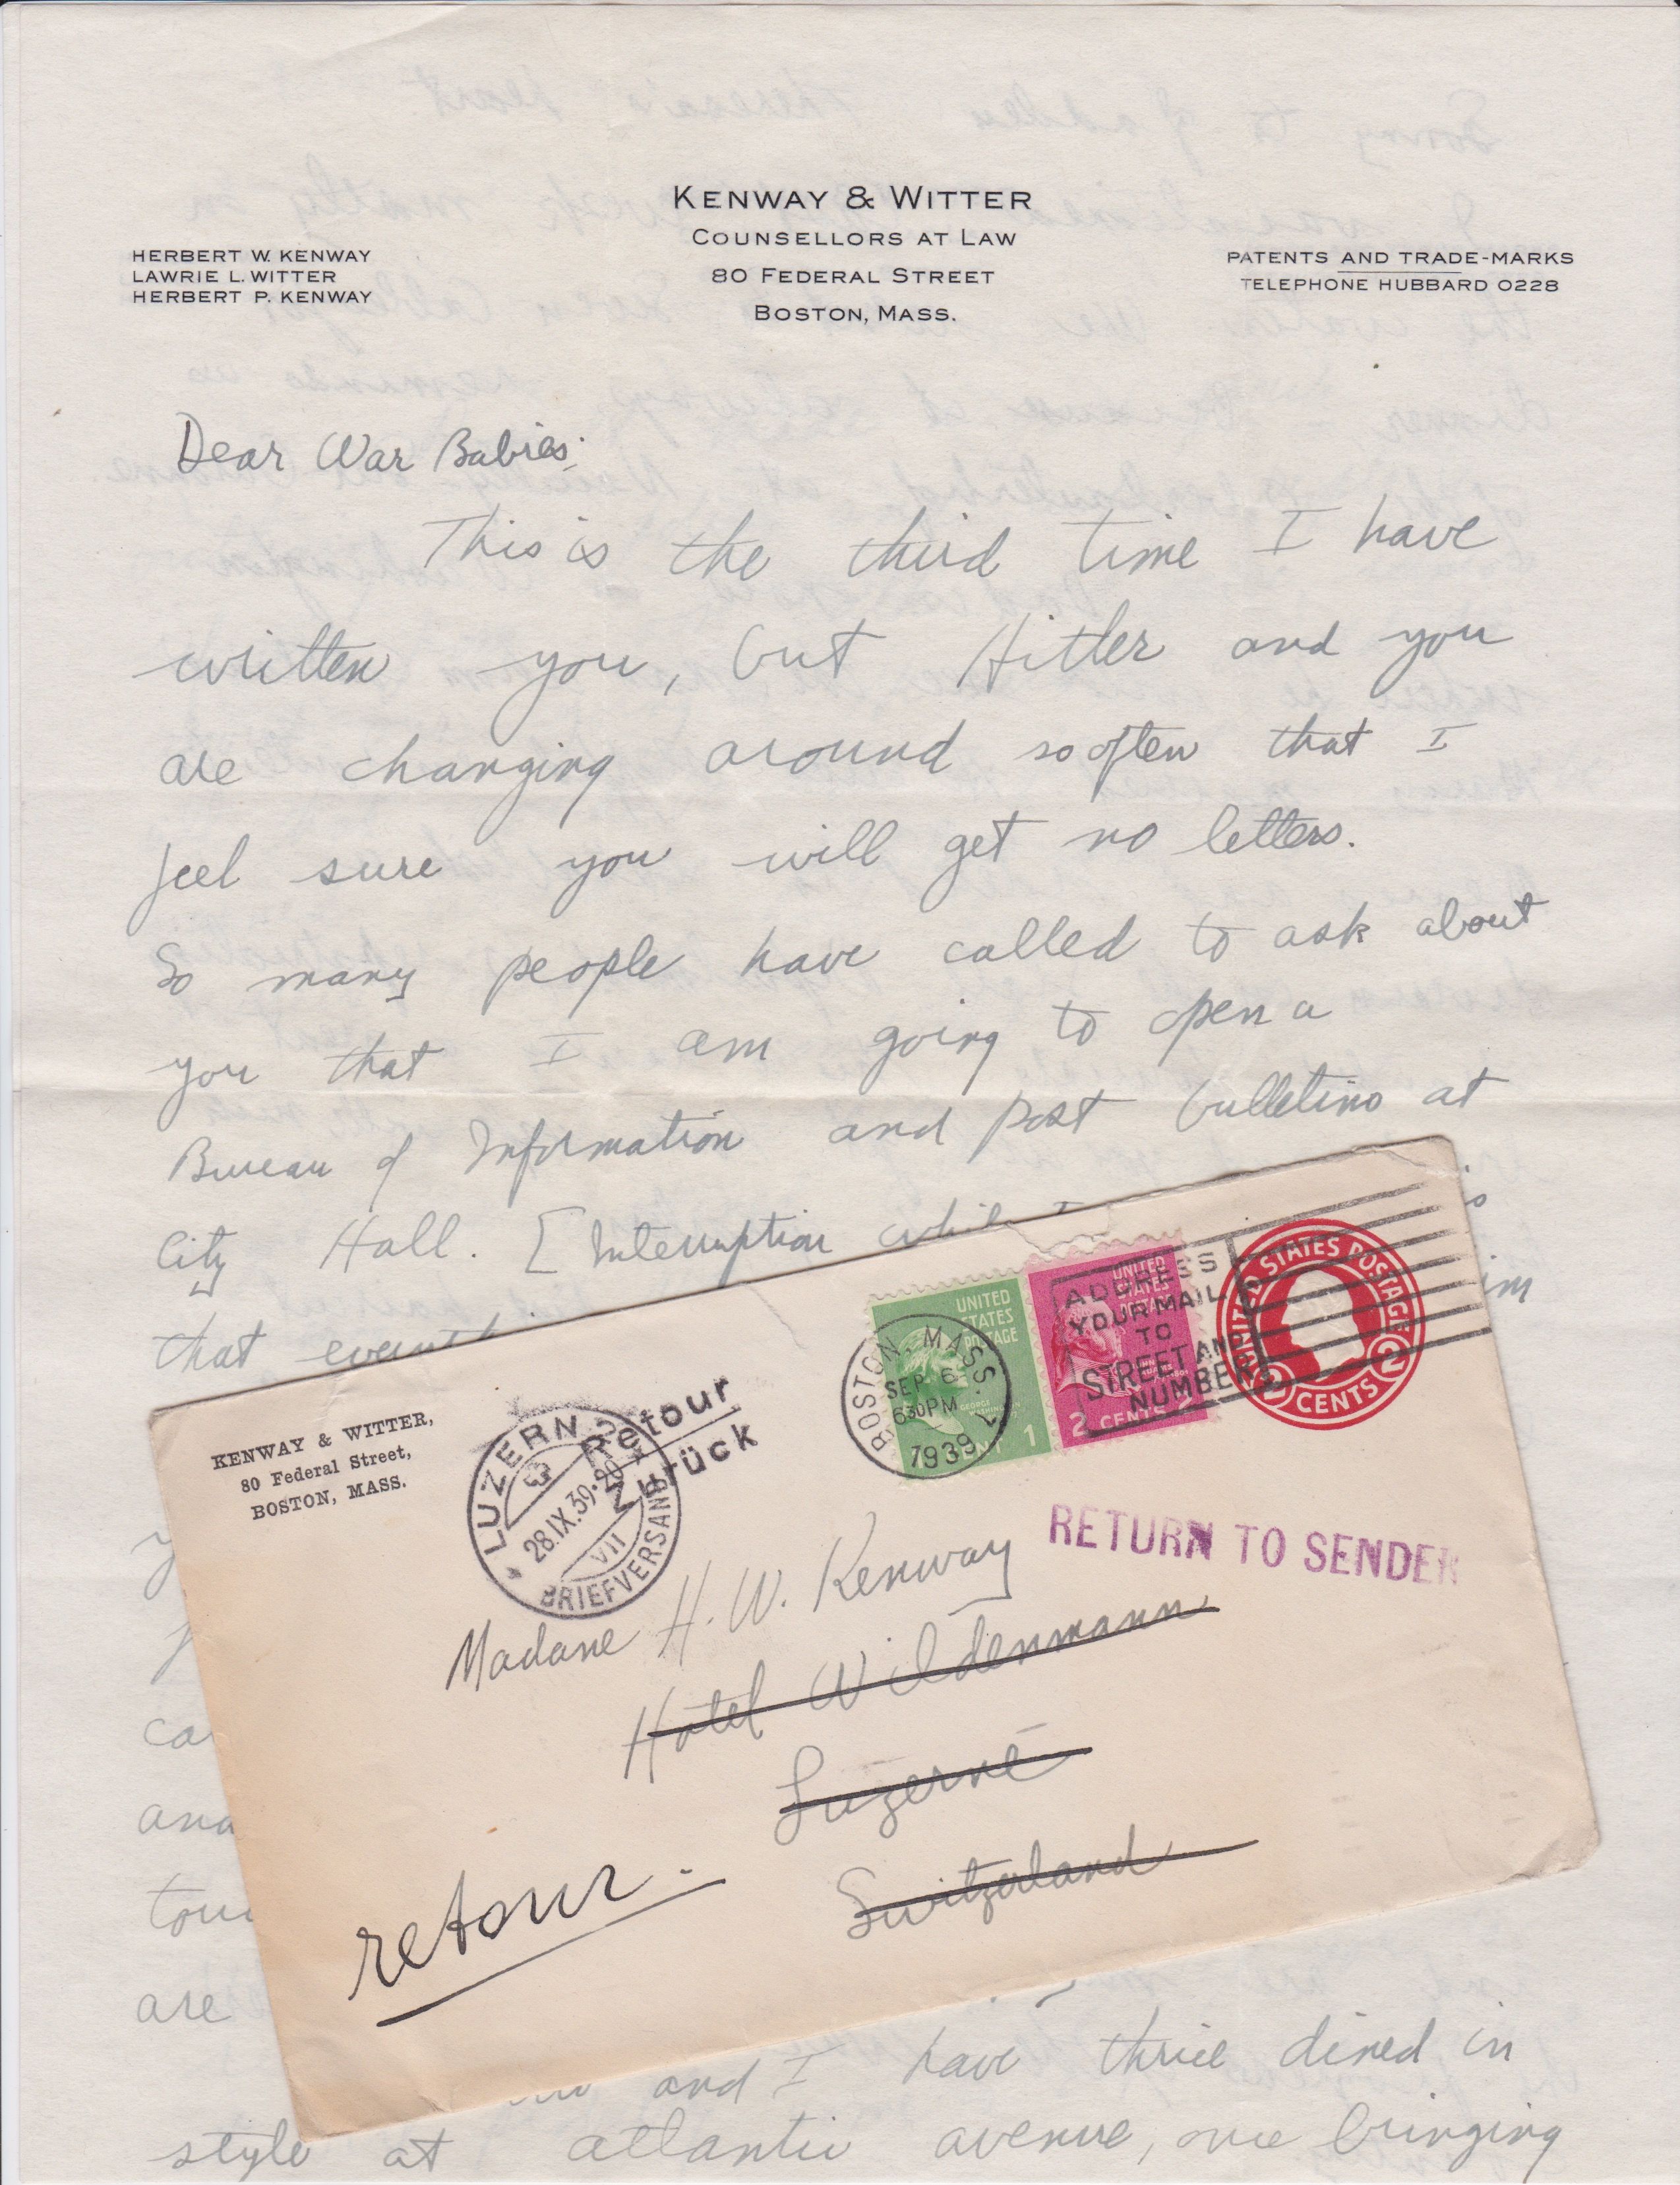 KENWAY & WITTER
COUNSELLORS AT LAW
80 FEDERAL STREET
BOSTON, MASS.
HERBERT W. KENWAY
LAWRIE L. WITTER
HERBERT P. KENWAY
PATENTS AND TRADE-MARKS
TELEPHONE HUBBARD 0228
Dear War Babies;
This is the third time I have
written you, but Hitler and you
are changing around so often that I
feel sure you will get no letters.
So many people have called to ask about
you that I am going to open a
Bureau of Information and post bulletins at
City Hall. [Interruption while I
that
and
are
and I have thrice dined in
style at atlantic avenue, one bringing
KENWAY & WITTER,
80 Federal Street,
BOSTON, MASS.
LUZERN 2
28.IX.39.-20
VII
BRIEFVERSAND
Retour
Zurück
BOSTON, MASS. 1
SEP 6
630 PM
1939
UNITED
STATES
POSTAGE
GEORGE
WASHINGTON
1 CENT 1
UNITED
STATES
POSTAGE
2 CENTS 2
ADDRESS
YOUR MAIL
TO
STREET AND
NUMBER
UNITED STATES POSTAGE
2 CENTS 2
RETURN TO SENDER
Madame H. W. Kenway
Hotel Wildenmann
Luzerne
Switzerland
retour.